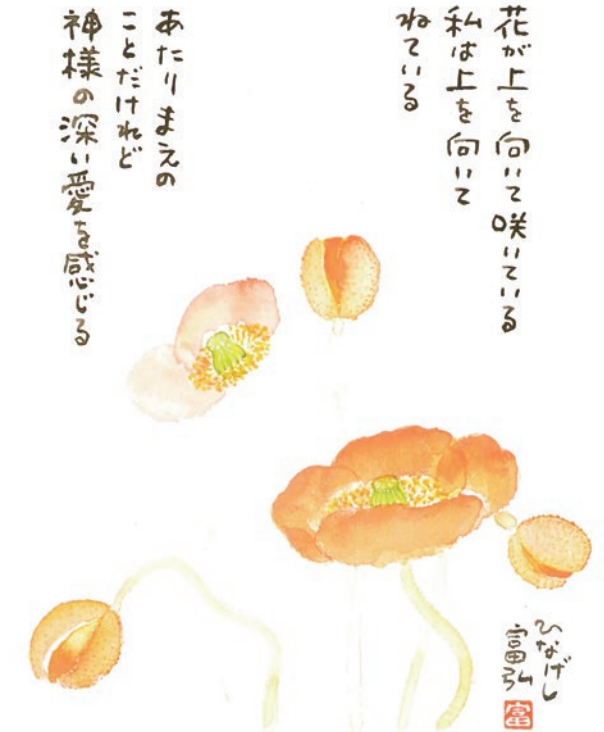 花が上を向いて咲いている
私は上を向いて
ねている
あたりまえの
ことだけれど
神様の深い愛を感じる
ひなげし
富弘
富